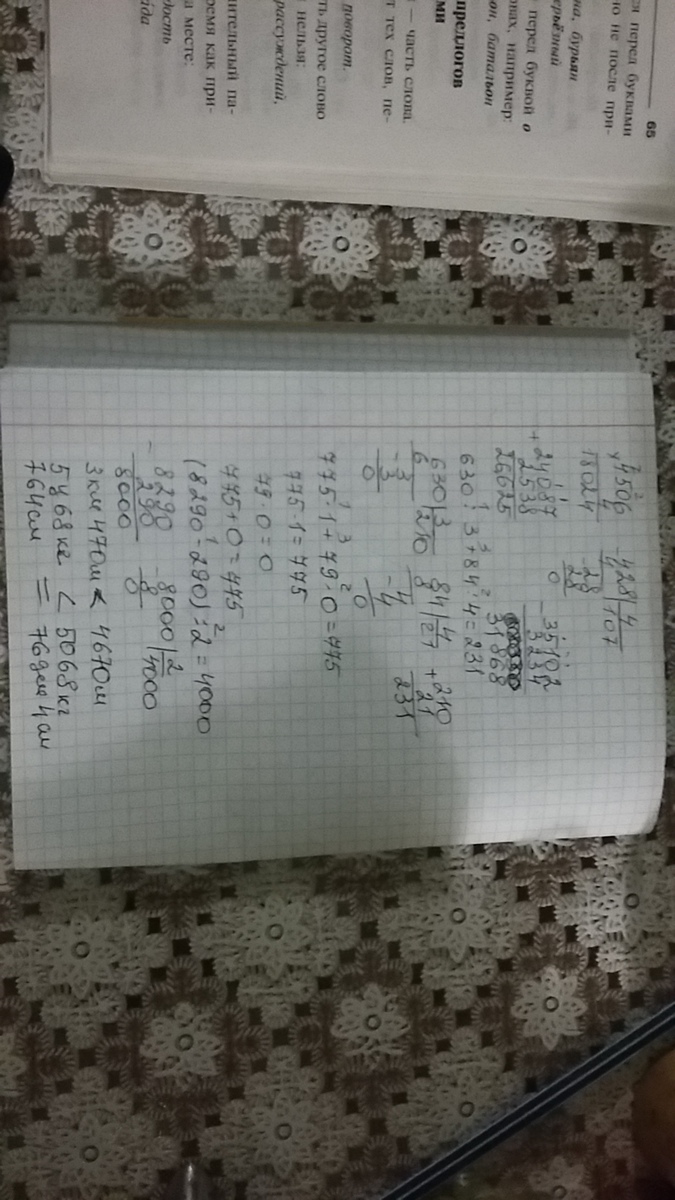 65
ся перед буквами
но не после при-
на, бурьян
ерьёзный
перед буквой о
овах, например:
он, батальон
предлогов
ми
— часть слова.
т тех слов, пе-
поворот.
ть другое слово
нельзя:
рассуждений,
нительный па-
ремя как при-
а месте:
дость
ида
4506 428 4
4 4 107
18024 28
28
0
+24087 -35102
2538 3234
26625 31868
630:3+84:4=231
630 3 84 4 +210
6 210 8 21 21
-3 -4 231
3 4
0 0
775·1+79·0=775
775·1=775
79·0=0
775+0=775
(8290-290):2=4000
-8290 -8000 2
290 8 4000
8000 0
3км 470м < 4670м
5ц 68кг < 5068кг
764см = 76дм 4см